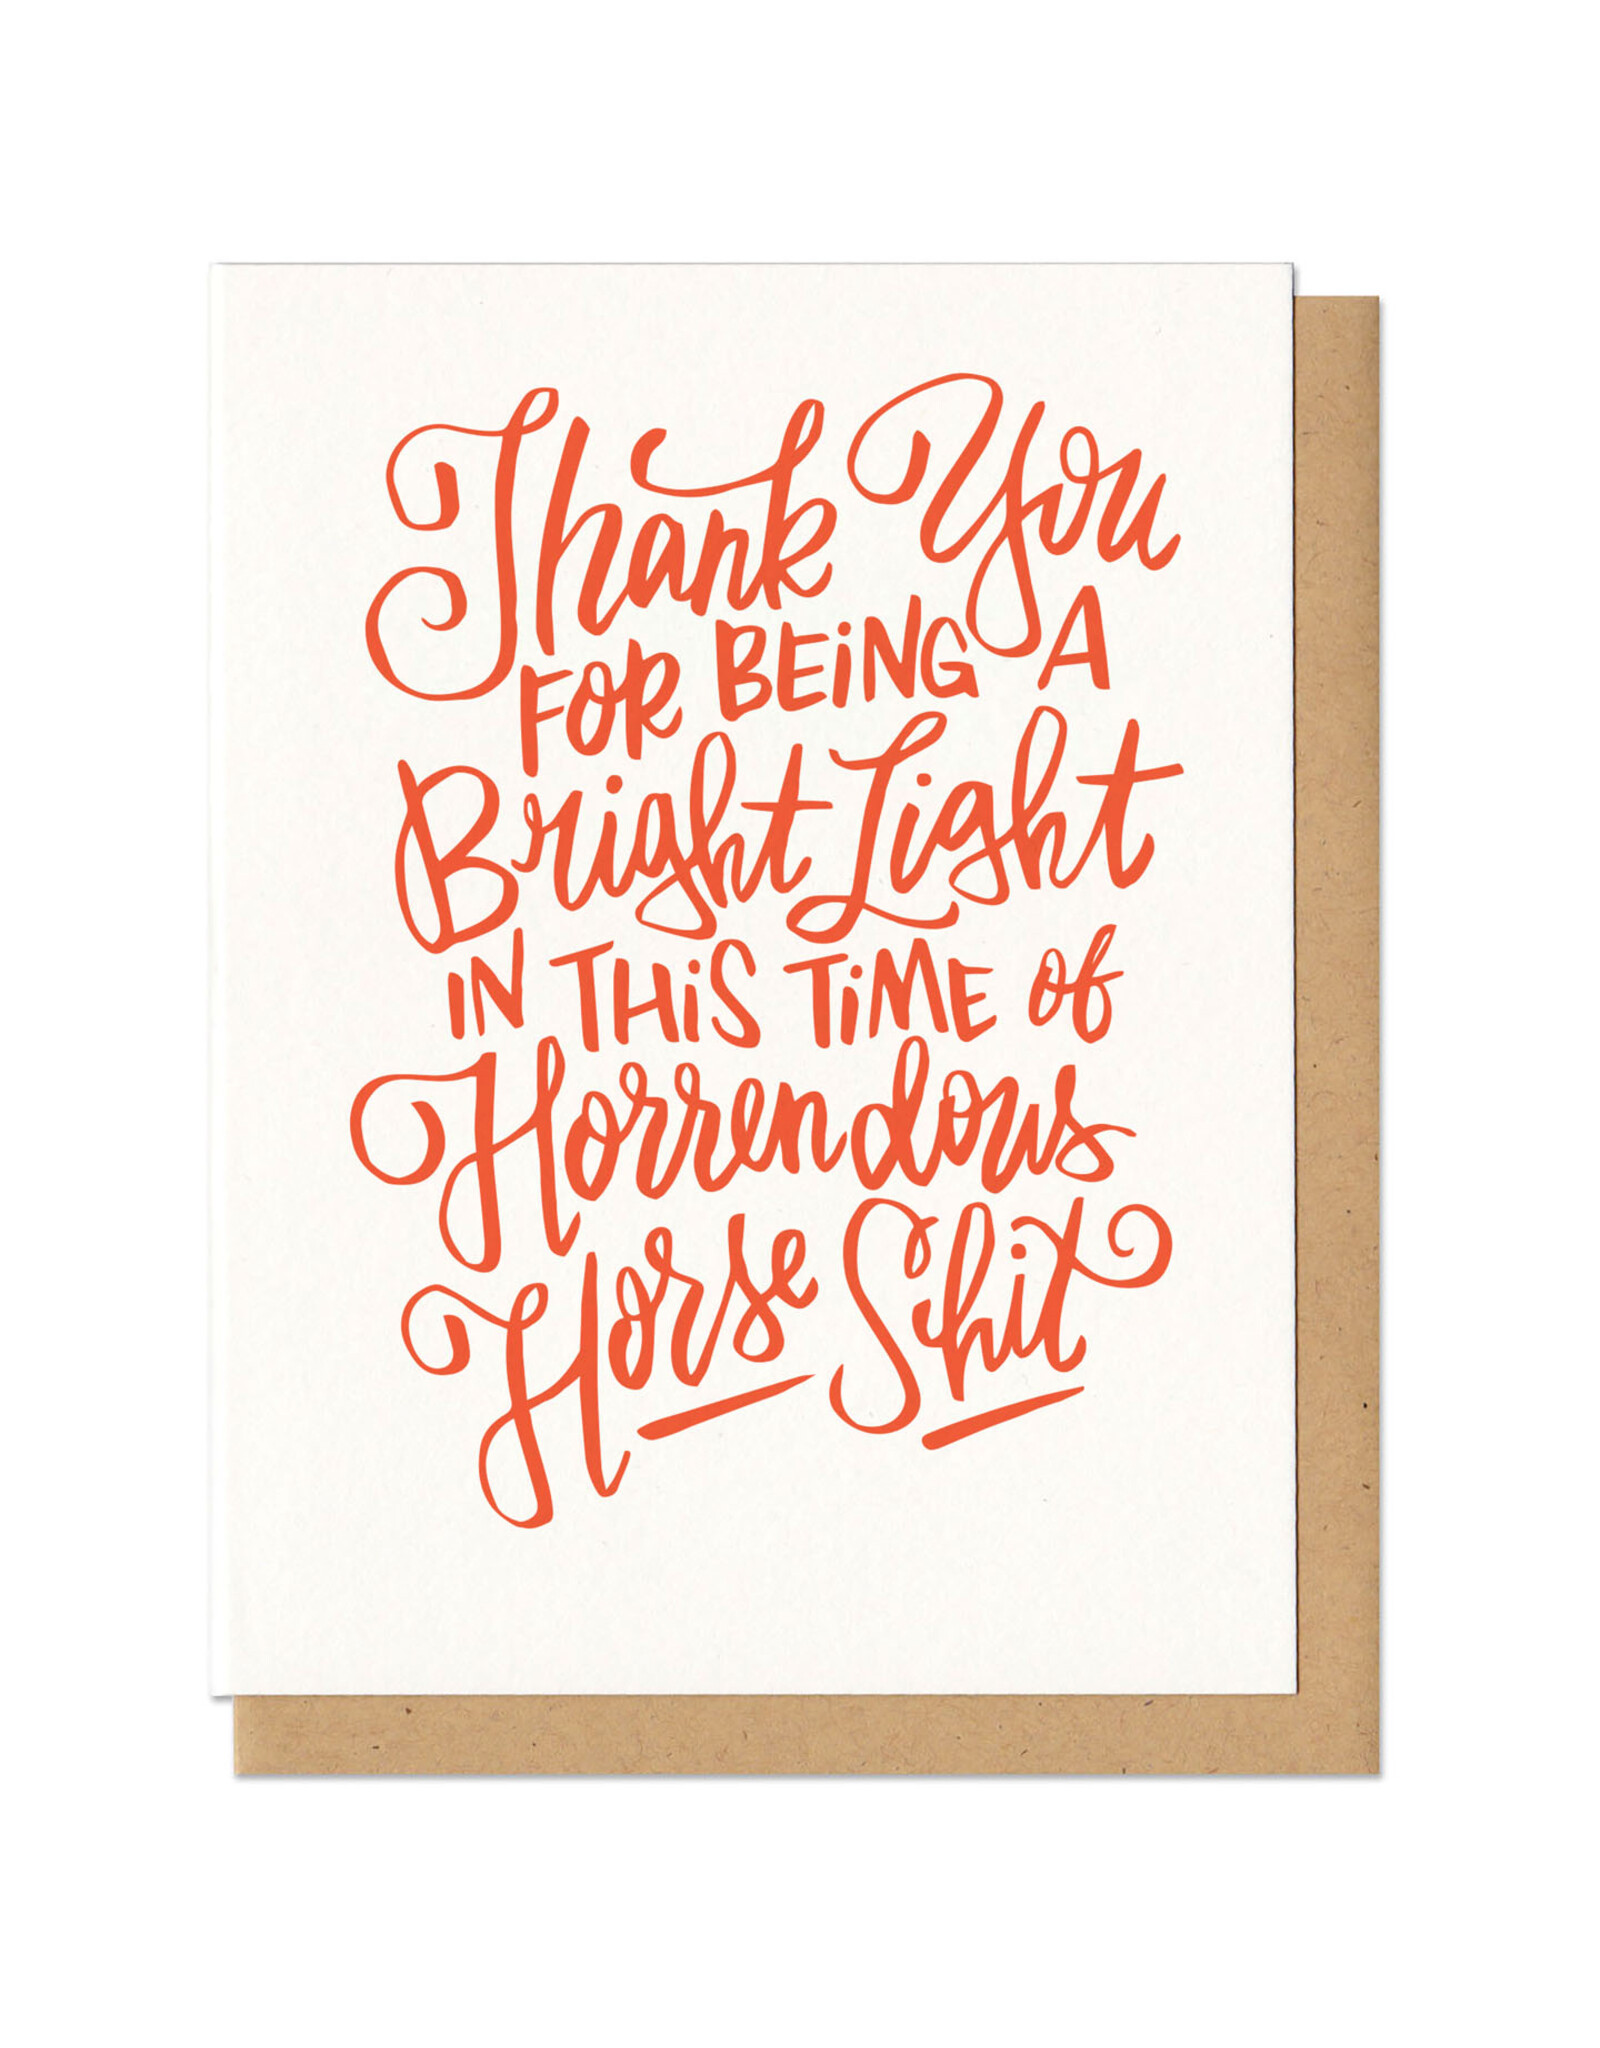 Thank You
FOR BEiNG A
Bright Light
IN THiS TiME of
Horrendous
Horse Shit